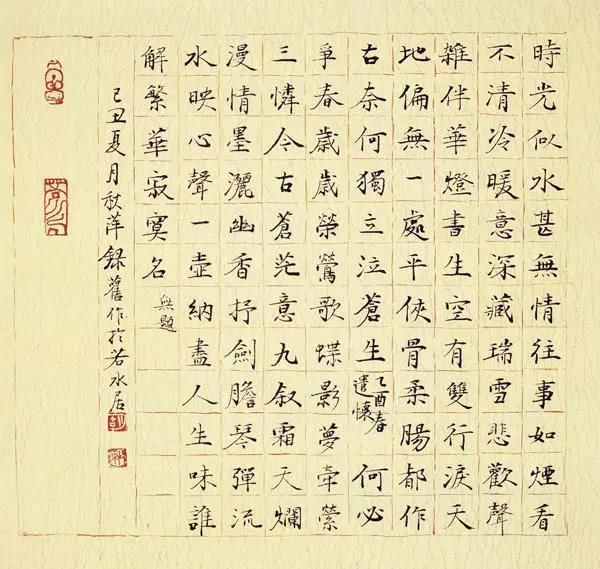 時光似水甚無情往事如煙看
不清冷暖意深藏瑞雪悲歡聲
雜伴華燈書生空有雙行淚天
地偏無一處平俠骨柔腸都作
古奈何獨立泣蒼生乙酉春遣懷何必
爭春歲歲榮鶯歌蝶影夢牽縈
三憐今古蒼茫意九叙霜天爛
漫情墨灑幽香抒劍膽琴彈流
水映心聲一壺納盡人生味誰
解繁華寂寞名無題
己丑夏月秋萍錄舊作於若水居